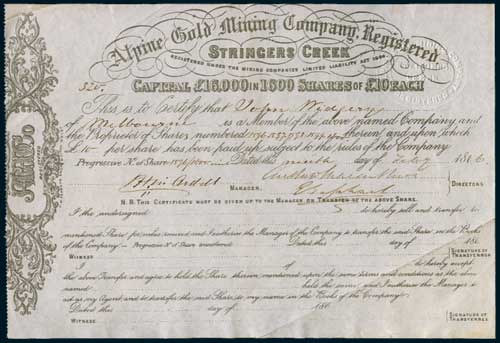 Alpine Gold Mining Company, Registered
STRINGERS CREEK
REGISTERED UNDER THE MINING COMPANIES LIMITED LIABILITY ACT 1864.
CAPITAL £16,000 IN 1600 SHARES OF £10 EACH
This is to Certify that John
of Melbourne is a Member of the above named Company, and
the Proprietor of Shares, numbered therein, and upon which
£10 per share has been paid up, subject to the rules of the Company
Progressive No. of Share Dated this ninth day of 186
MANAGER.
DIRECTORS
N.B. THIS CERTIFICATE MUST BE GIVEN UP TO THE MANAGER ON TRANSFER OF THE ABOVE SHARE.
I the undersigned to hereby sell and transfer
mentioned Share for value received and I authorize the Manager of the Company to transfer the said Share in the Books
of the Company — Progressive No. of Share transferred Dated this day of 186
WITNESS
SIGNATURE OF TRANSFEROR
I of do hereby accept
the above Transfer and agree to hold the Share therein mentioned upon the same terms and conditions as the above
named held the same and I authorize the Manager to
act as my Agent and to transfer the said Share to my name in the Books of the Company
Dated this day of 186
WITNESS
SIGNATURE OF TRANSFEREE